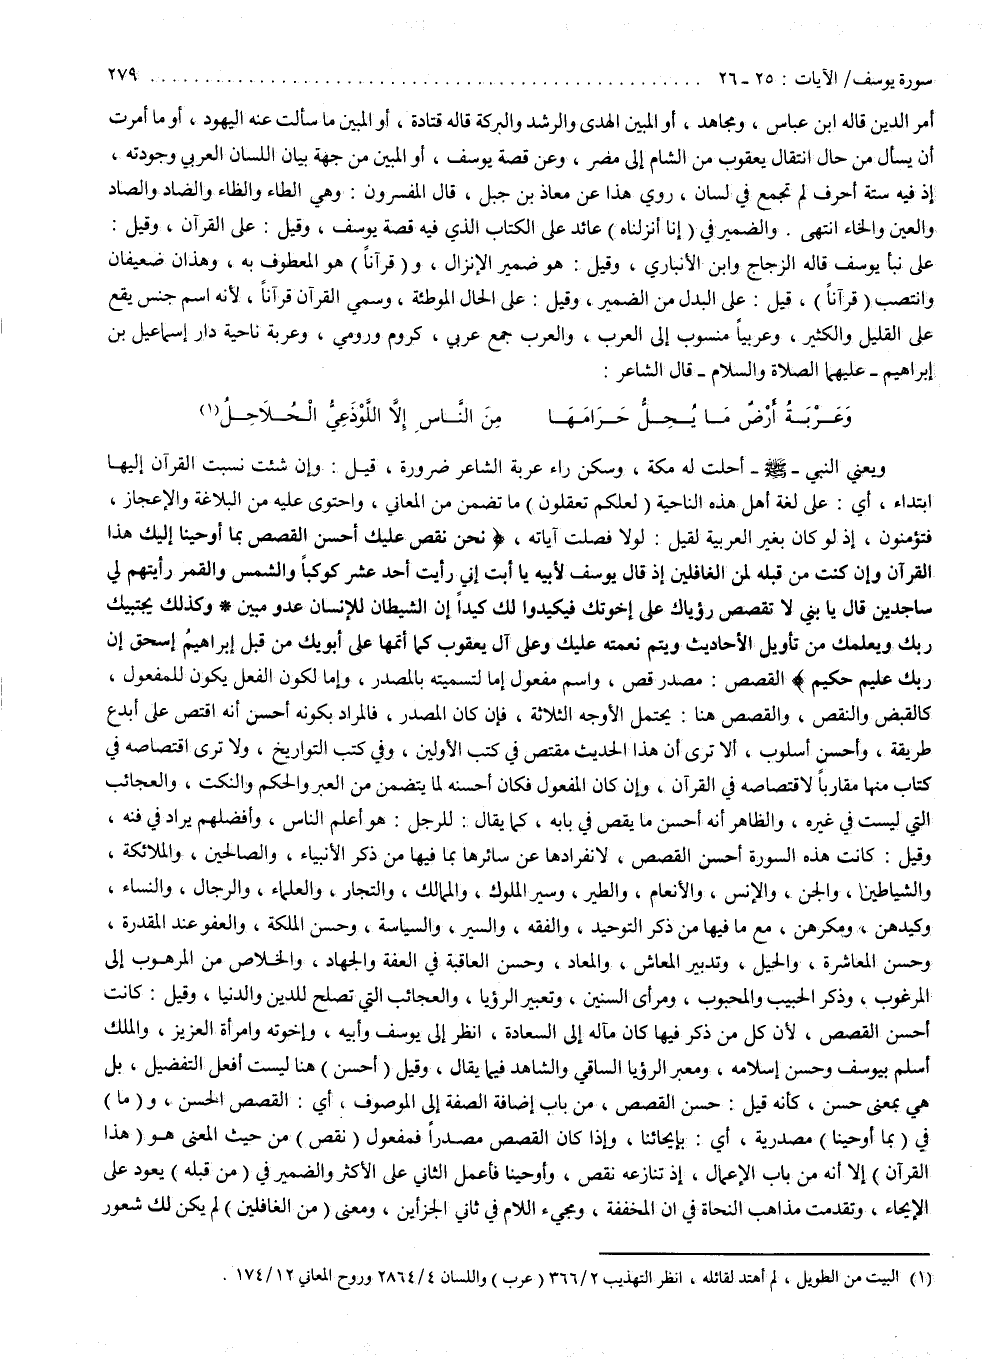 سورة يوسف/ الآيات : ٢٥ ـ ٢٦ ........................................................ ٢٧٩
أمر الدين قاله ابن عباس ، ومجاهد ، أو المبين الهدى والرشد والبركة قاله قتادة ، أو المبين ما سألت عنه اليهود ، أو ما أمرت
أن يسأل من حال انتقال يعقوب من الشام إلى مصر ، وعن قصة يوسف ، أو المبين من جهة بيان اللسان العربي وجودته ،
إذ فيه ستة أحرف لم تجمع في لسان ، روي هذا عن معاذ بن جبل ، قال المفسرون : وهي الطاء والظاء والضاد والصاد
والعين والخاء انتهى . والضمير في ( إنا أنزلناه ) عائد على الكتاب الذي فيه قصة يوسف ، وقيل : على القرآن ، وقيل :
على نبأ يوسف قاله الزجاج وابن الأنباري ، وقيل : هو ضمير الإنزال ، و ( قرآناً ) هو المعطوف به ، وهذان ضعيفان
وانتصب ( قرآناً ) ، قيل : على البدل من الضمير ، وقيل : على الحال الموطئة ، وسمي القرآن قرآناً ، لأنه اسم جنس يقع
على القليل والكثير ، وعربياً منسوب إلى العرب ، والعرب جمع عربي ، كروم ورومي ، وعربة ناحية دار إسماعيل بن
إبراهيم ـ عليهما الصلاة والسلام ـ قال الشاعر :
وَعَرْبَةُ أَرْضٌ مَا يُحِلُّ حَرَامَهَا مِنَ النَّاسِ إِلَّا اللَّوْذَعِيُّ الْحُلَاحِلُ(١)
ويعني النبي ـ ﷺ ـ أحلت له مكة ، وسكن راء عربة الشاعر ضرورة ، قيل : وإن شئت نسبت القرآن إليها
ابتداء ، أي : على لغة أهل هذه الناحية ( لعلكم تعقلون ) ما تضمن من المعاني ، واحتوى عليه من البلاغة والإعجاز ،
فتؤمنون ، إذ لو كان بغير العربية لقيل : لولا فصلت آياته ، ﴿ نحن نقص عليك أحسن القصص بما أوحينا إليك هذا
القرآن وإن كنت من قبله لمن الغافلين إذ قال يوسف لأبيه يا أبت إني رأيت أحد عشر كوكباً والشمس والقمر رأيتهم لي
ساجدين قال يا بني لا تقصص رؤياك على إخوتك فيكيدوا لك كيداً إن الشيطان للإنسان عدو مبين * وكذلك يجتبيك
ربك ويعلمك من تأويل الأحاديث ويتم نعمته عليك وعلى آل يعقوب كما أتمها على أبويك من قبل إبراهيم إسحق إن
ربك عليم حكيم ﴾ القصص : مصدر قص ، واسم مفعول إما لتسميته بالمصدر ، وإما لكون الفعل يكون للمفعول ،
كالقبض والنقص ، والقصص هنا : يحتمل الأوجه الثلاثة ، فإن كان المصدر ، فالمراد بكونه أحسن أنه اقتص على أبدع
طريقة ، وأحسن أسلوب ، ألا ترى أن هذا الحديث مقتص في كتب الأولين ، وفي كتب التواريخ ، ولا ترى اقتصاصه في
كتاب منها مقارباً لاقتصاصه في القرآن ، وإن كان المفعول فكان أحسنه لما يتضمن من العبر والحكم والنكت ، والعجائب
التي ليست في غيره ، والظاهر أنه أحسن ما يقص في بابه ، كما يقال : للرجل : هو أعلم الناس ، وأفضلهم يراد في فنه ،
وقيل : كانت هذه السورة أحسن القصص ، لانفرادها عن سائرها بما فيها من ذكر الأنبياء ، والصالحين ، والملائكة ،
والشياطين ، والجن ، والإنس ، والأنعام ، والطير ، وسير الملوك ، والممالك ، والتجار ، والعلماء ، والرجال ، والنساء ،
وكيدهن ، ومكرهن ، مع ما فيها من ذكر التوحيد ، والفقه ، والسير ، والسياسة ، وحسن الملكة ، والعفو عند المقدرة ،
وحسن المعاشرة ، والحيل ، وتدبير المعاش ، والمعاد ، وحسن العاقبة في العفة والجهاد ، والخلاص من المرهوب إلى
المرغوب ، وذكر الحبيب والمحبوب ، ومرأى السنين ، وتعبير الرؤيا ، والعجائب التي تصلح للدين والدنيا ، وقيل : كانت
أحسن القصص ، لأن كل من ذكر فيها كان مآله إلى السعادة ، انظر إلى يوسف وأبيه ، وإخوته وامرأة العزيز ، والملك
أسلم بيوسف وحسن إسلامه ، ومعبر الرؤيا الساقي والشاهد فيما يقال ، وقيل ( أحسن ) هنا ليست أفعل التفضيل ، بل
هي بمعنى حسن ، كأنه قيل : حسن القصص ، من باب إضافة الصفة إلى الموصوف ، أي : القصص الحسن ، و ( ما )
في ( بما أوحينا ) مصدرية ، أي : بإيحائنا ، وإذا كان القصص مصدراً فمفعول ( نقص ) من حيث المعنى هو ( هذا
القرآن ) إلا أنه من باب الإعمال ، إذ تنازعه نقص ، وأوحينا فأعمل الثاني على الأكثر والضمير في ( من قبله ) يعود على
الإيحاء ، وتقدمت مذاهب النحاة في ان المخففة ، ومجيء اللام في ثاني الجزأين ، ومعنى ( من الغافلين ) لم يكن لك شعور
(١) البيت من الطويل ، لم أهتد لقائله ، انظر التهذيب ٣٦٦/٢ ( عرب ) واللسان ٢٨٦٤/٤ وروح المعاني ١٧٤/١٢ .